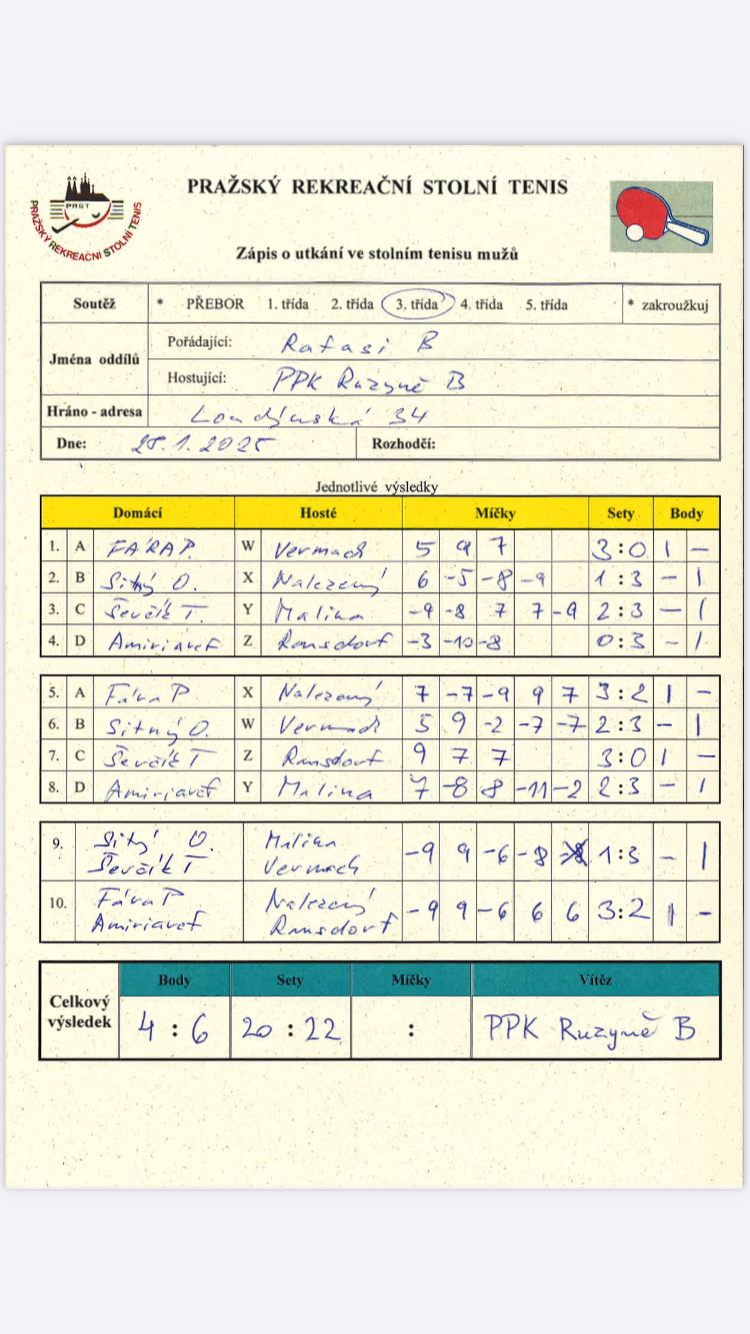 PRAŽSKÝ REKREAČNÍ STOLNÍ TENIS
PRST
PRAŽSKÝ REKREAČNÍ STOLNÍ TENIS
Zápis o utkání ve stolním tenisu mužů
Soutěž * PŘEBOR 1. třída 2. třída 3. třída 4. třída 5. třída * zakroužkuj
Jména oddílů
Pořádající: Rafasi B
Hostující: PPK Ruzyně B
Hráno - adresa Londýnská 34
Dne: 28.1.2025 Rozhodčí:
Jednotlivé výsledky
Domácí Hosté Míčky Sety Body
1. A FÁRA P. W Vermach 5 9 7 3:0 1 -
2. B Sitný O. X Nalezený 6 -5 -8 -9 1:3 - 1
3. C Ševčík T. Y Malina -9 -8 7 7 -9 2:3 - 1
4. D Amiriaref Z Ransdorf -3 -10 -8 0:3 - 1
5. A Fára P X Nalezený 7 -7 -9 9 7 3:2 1 -
6. B Sitný O. W Vermach 5 9 -2 -7 -7 2:3 - 1
7. C Ševčík T Z Ransdorf 9 7 7 3:0 1 -
8. D Amiriaref Y Malina 7 -8 8 -11 -2 2:3 - 1
9. Sitný O. Malina
Ševčík T Vermach -9 9 -6 -8 1:3 - 1
10. Fára P Nalezený
Amiriaref Ransdorf -9 9 -6 6 6 3:2 1 -
Celkový výsledek
Body Sety Míčky Vítěz
4 : 6 20 : 22 : PPK Ruzyně B